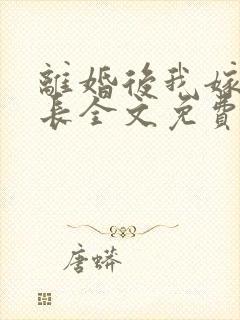 離婚後我嫁
長全文免費
唐蟒